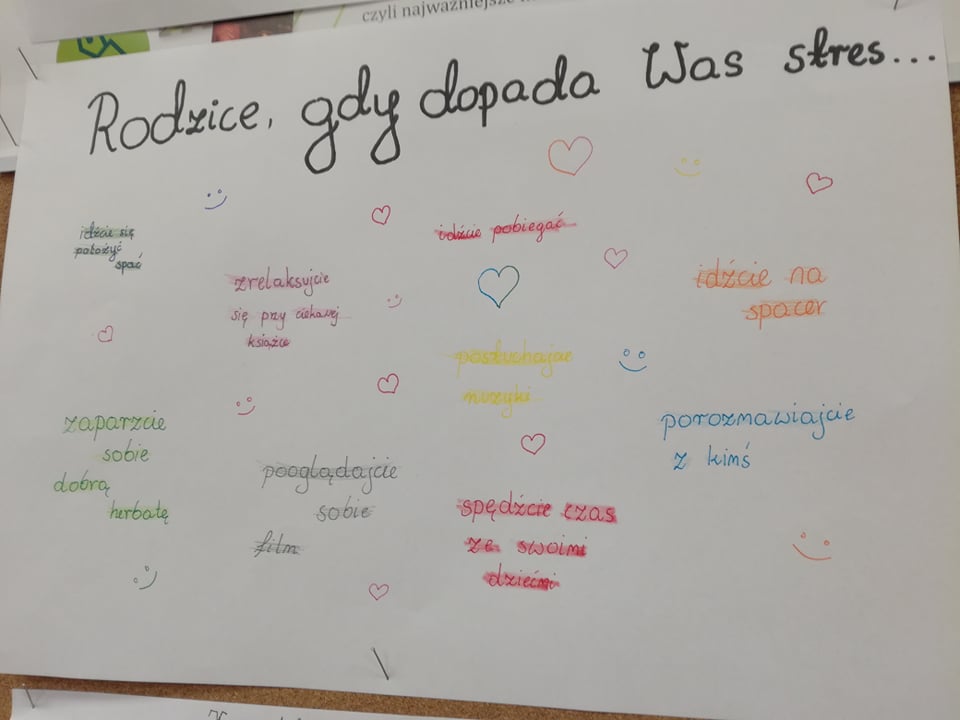 czyli najważniejsze
Rodzice, gdy dopada Was stres...
idźcie się
położyć
spać
zrelaksujcie
się przy ciekawej
książce
idźcie pobiegać
idźcie na
spacer
posłuchajcie
muzyki
zaparzcie
sobie
dobrą
herbatę
pooglądajcie
sobie
film
spędźcie czas
ze swoimi
dziećmi
porozmawiajcie
z kimś